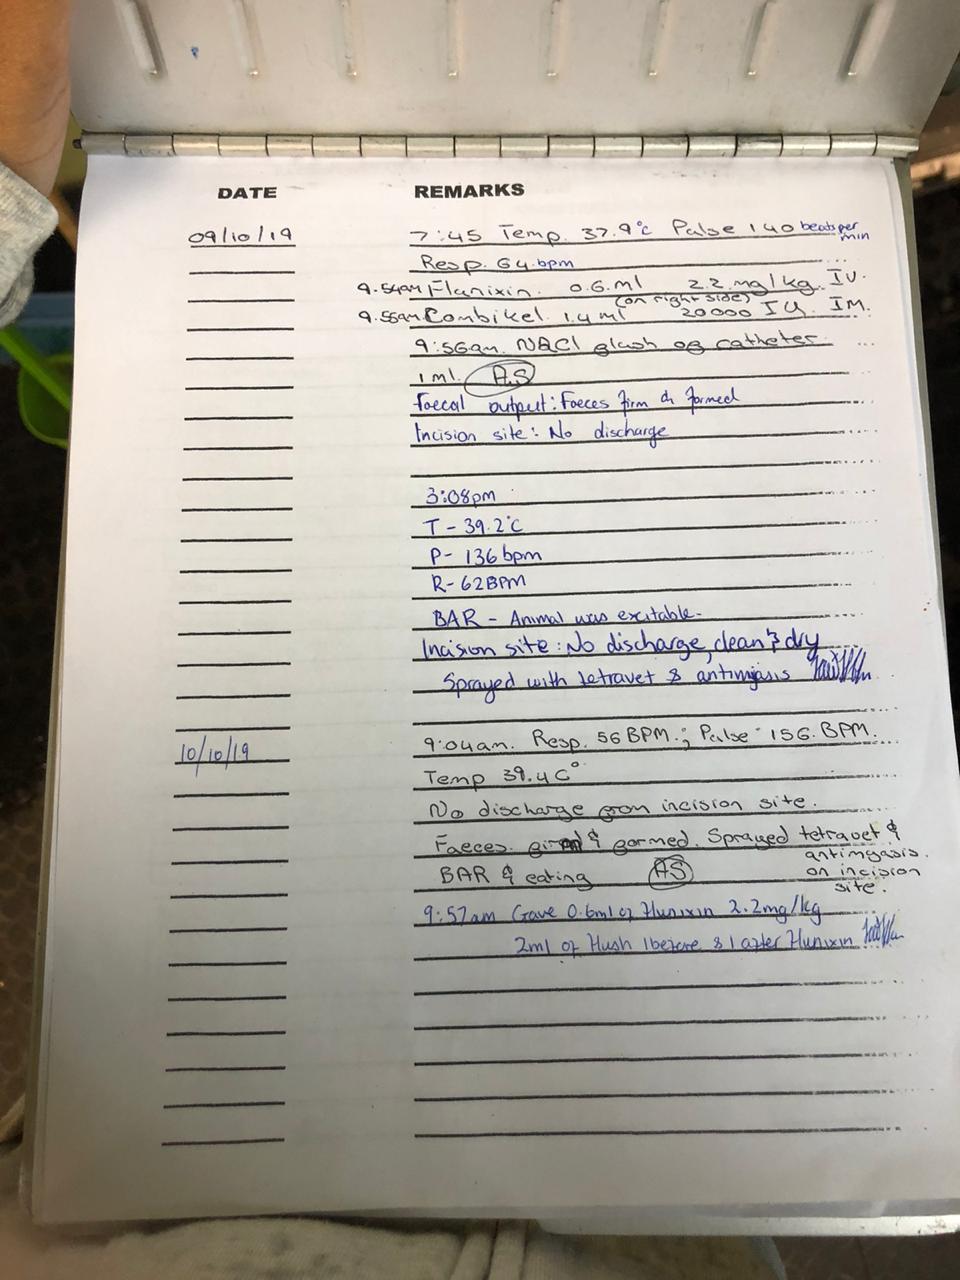 DATE REMARKS
09/10/19 7:45 Temp. 37.9°c Pulse 140 beats per min
Resp. 64 bpm
9.54am Flunixin. 0.6.ml 2.2.mg/kg. IV.
(on right side)
9.55am Combikel. 1.4 ml 20000 IU. IM.
9:56am. NaCl flush of catheter.
1 ml. A.S
Faecal output: Faeces firm & formed
Incision site: No discharge
3:08pm
T - 39.2°C
P- 136 bpm
R- 62BPM
BAR - Animal was excitable-
Incision site: No discharge, clean & dry
Sprayed with tetravet & antimyiasis
10/10/19 9:04am. Resp. 56 BPM.; Pulse 156. BPM.
Temp 39.4C°
No discharge from incision site.
Faeces. firm & formed. Sprayed tetravet & antimyasis. on incision site.
BAR & eating AS
9:57am Gave 0.6ml of Flunixin 2.2mg/kg
2ml of flush 1 before & 1 after Flunixin